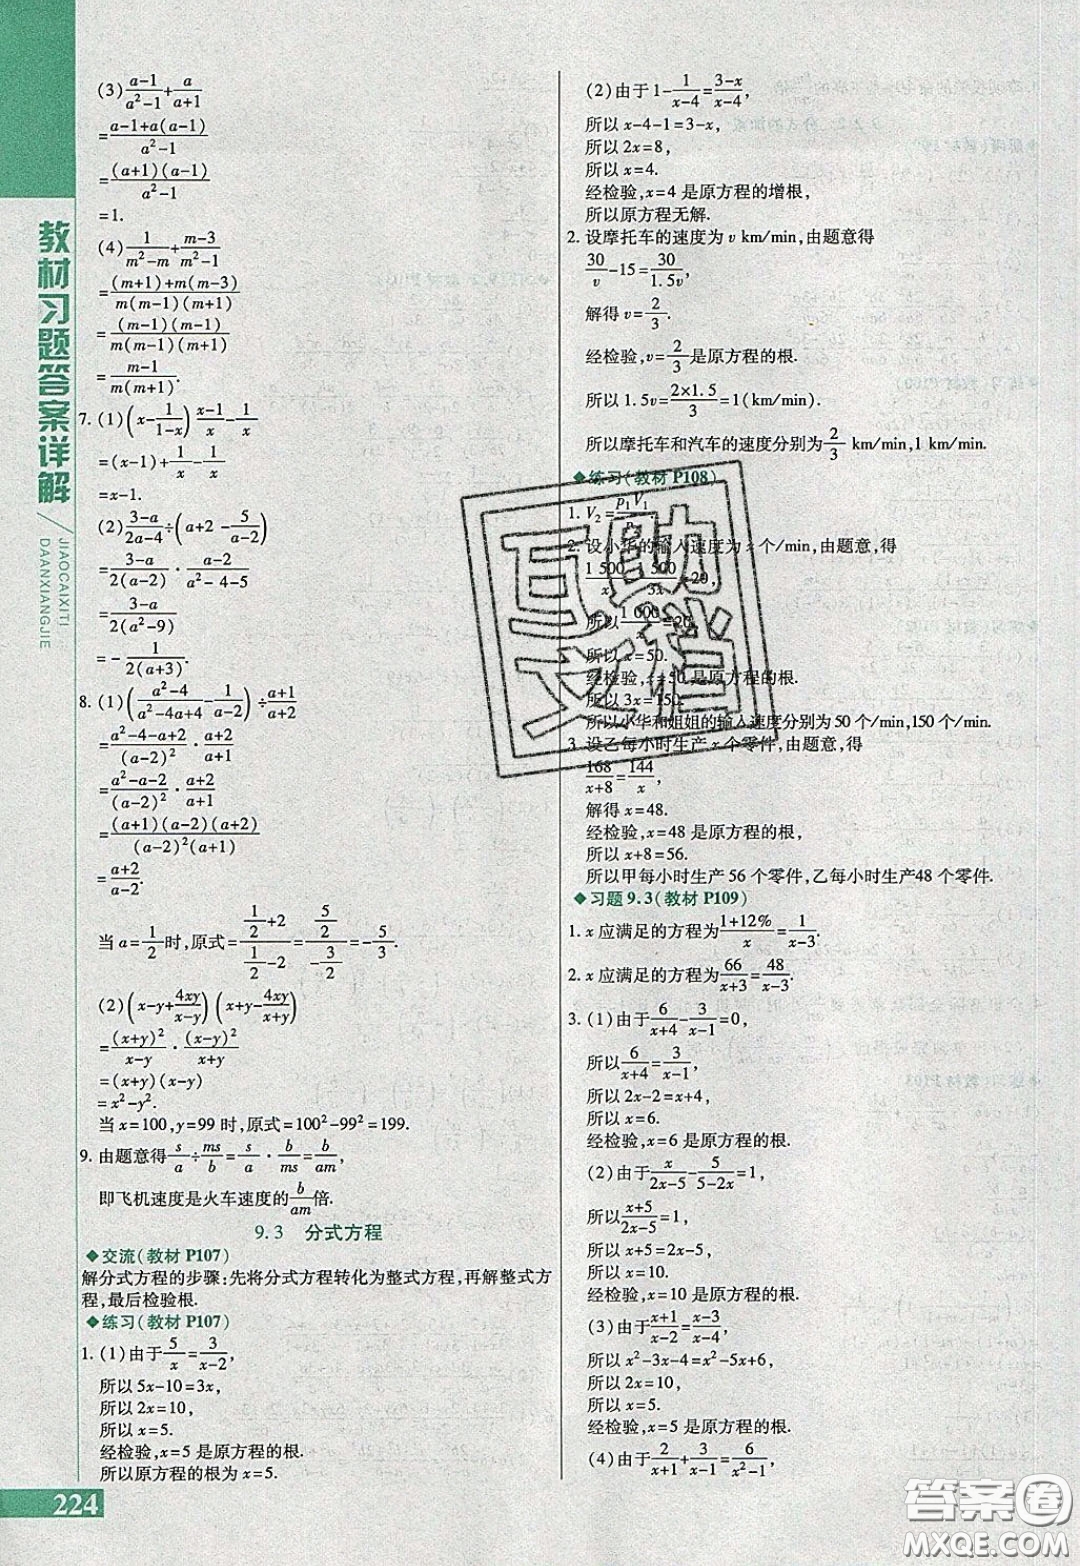 教材习题答案详解
JIAOCAIXITI
DAANXIANGJIE
(3) (a-1)/(a²-1)+a/(a+1)
=(a-1+a(a-1))/(a²-1)
=((a+1)(a-1))/(a²-1)
=1.
(4) 1/(m²-m)+(m-3)/(m²-1)
=((m+1)+m(m-3))/(m(m-1)(m+1))
=((m-1)(m-1))/(m(m-1)(m+1))
=(m-1)/(m(m+1)).
7. (1)(x-1/(1-x)) (x-1)/x-1/x
=(x-1)+1/x-1/x
=x-1.
(2) (3-a)/(2a-4)÷(a+2-5/(a-2))
=(3-a)/(2(a-2))·(a-2)/(a²-4-5)
=(3-a)/(2(a²-9))
=-1/(2(a+3)).
8. (1)((a²-4)/(a²-4a+4)-1/(a-2))÷(a+1)/(a+2)
=(a²-4-a+2)/(a-2)²·(a+2)/(a+1)
=(a²-a-2)/(a-2)²·(a+2)/(a+1)
=((a+1)(a-2)(a+2))/((a-2)²(a+1))
=(a+2)/(a-2).
当 a=1/2时,原式=(1/2+2)/(1/2-2)=(5/2)/(-3/2)=-5/3.
(2)(x-y+4xy/(x-y))(x+y-4xy/(x+y))
=(x+y)²/(x-y)·(x-y)²/(x+y)
=(x+y)(x-y)
=x²-y².
当 x=100,y=99 时,原式=100²-99²=199.
9. 由题意得s/a÷ms/b=s/a·b/ms=b/am,
即飞机速度是火车速度的b/am倍.
9.3 分式方程
◆交流(教材 P107)
解分式方程的步骤:先将分式方程转化为整式方程,再解整式方
程,最后检验根.
◆练习(教材 P107)
1. (1)由于5/x=3/(x-2),
所以 5x-10=3x,
所以 2x=10,
所以 x=5.
经检验,x=5 是原方程的根.
所以原方程的根为 x=5.
224
(2)由于 1-1/(x-4)=(3-x)/(x-4),
所以 x-4-1=3-x,
所以 2x=8,
所以 x=4.
经检验,x=4 是原方程的增根,
所以原方程无解.
2. 设摩托车的速度为 v km/min,由题意得
30/v-15=30/1.5v,
解得 v=2/3.
经检验,v=2/3是原方程的根.
所以 1.5v=(2×1.5)/3=1(km/min).
所以摩托车和汽车的速度分别为2/3 km/min,1 km/min.
◆练习(教材 P108)
1. V₂=p₁V₁/p.
2. 设小华的输入速度为 x 个/min,由题意,得
1 500/x-500/3x=20,
所以1 000/x=20,
所以 x=50.
经检验,x=50 是原方程的根.
所以 3x=150.
所以小华和姐姐的输入速度分别为 50 个/min,150 个/min.
3. 设乙每小时生产 x 个零件,由题意,得
168/(x+8)=144/x,
解得 x=48.
经检验,x=48 是原方程的根,
所以 x+8=56.
所以甲每小时生产 56 个零件,乙每小时生产48 个零件.
◆习题 9.3(教材 P109)
1. x 应满足的方程为(1+12%)/x=1/(x-3).
2. x 应满足的方程为66/(x+3)=48/(x-3).
3. (1)由于6/(x+4)-3/(x-1)=0,
所以6/(x+4)=3/(x-1),
所以 2x-2=x+4,
所以 x=6.
经检验,x=6 是原方程的根.
(2)由于x/(2x-5)-5/(5-2x)=1,
所以(x+5)/(2x-5)=1,
所以 x=10.
经检验,x=10 是原方程的根.
(3)由于(x+1)/(x-2)=(x-3)/(x-4),
所以 x²-3x-4=x²-5x+6,
所以 2x=10,
所以 x=5.
经检验,x=5 是原方程的根.
(4)由于2/(x+1)+3/(x-1)=6/(x²-1),
互助文档
答案圈
MXQE.COM